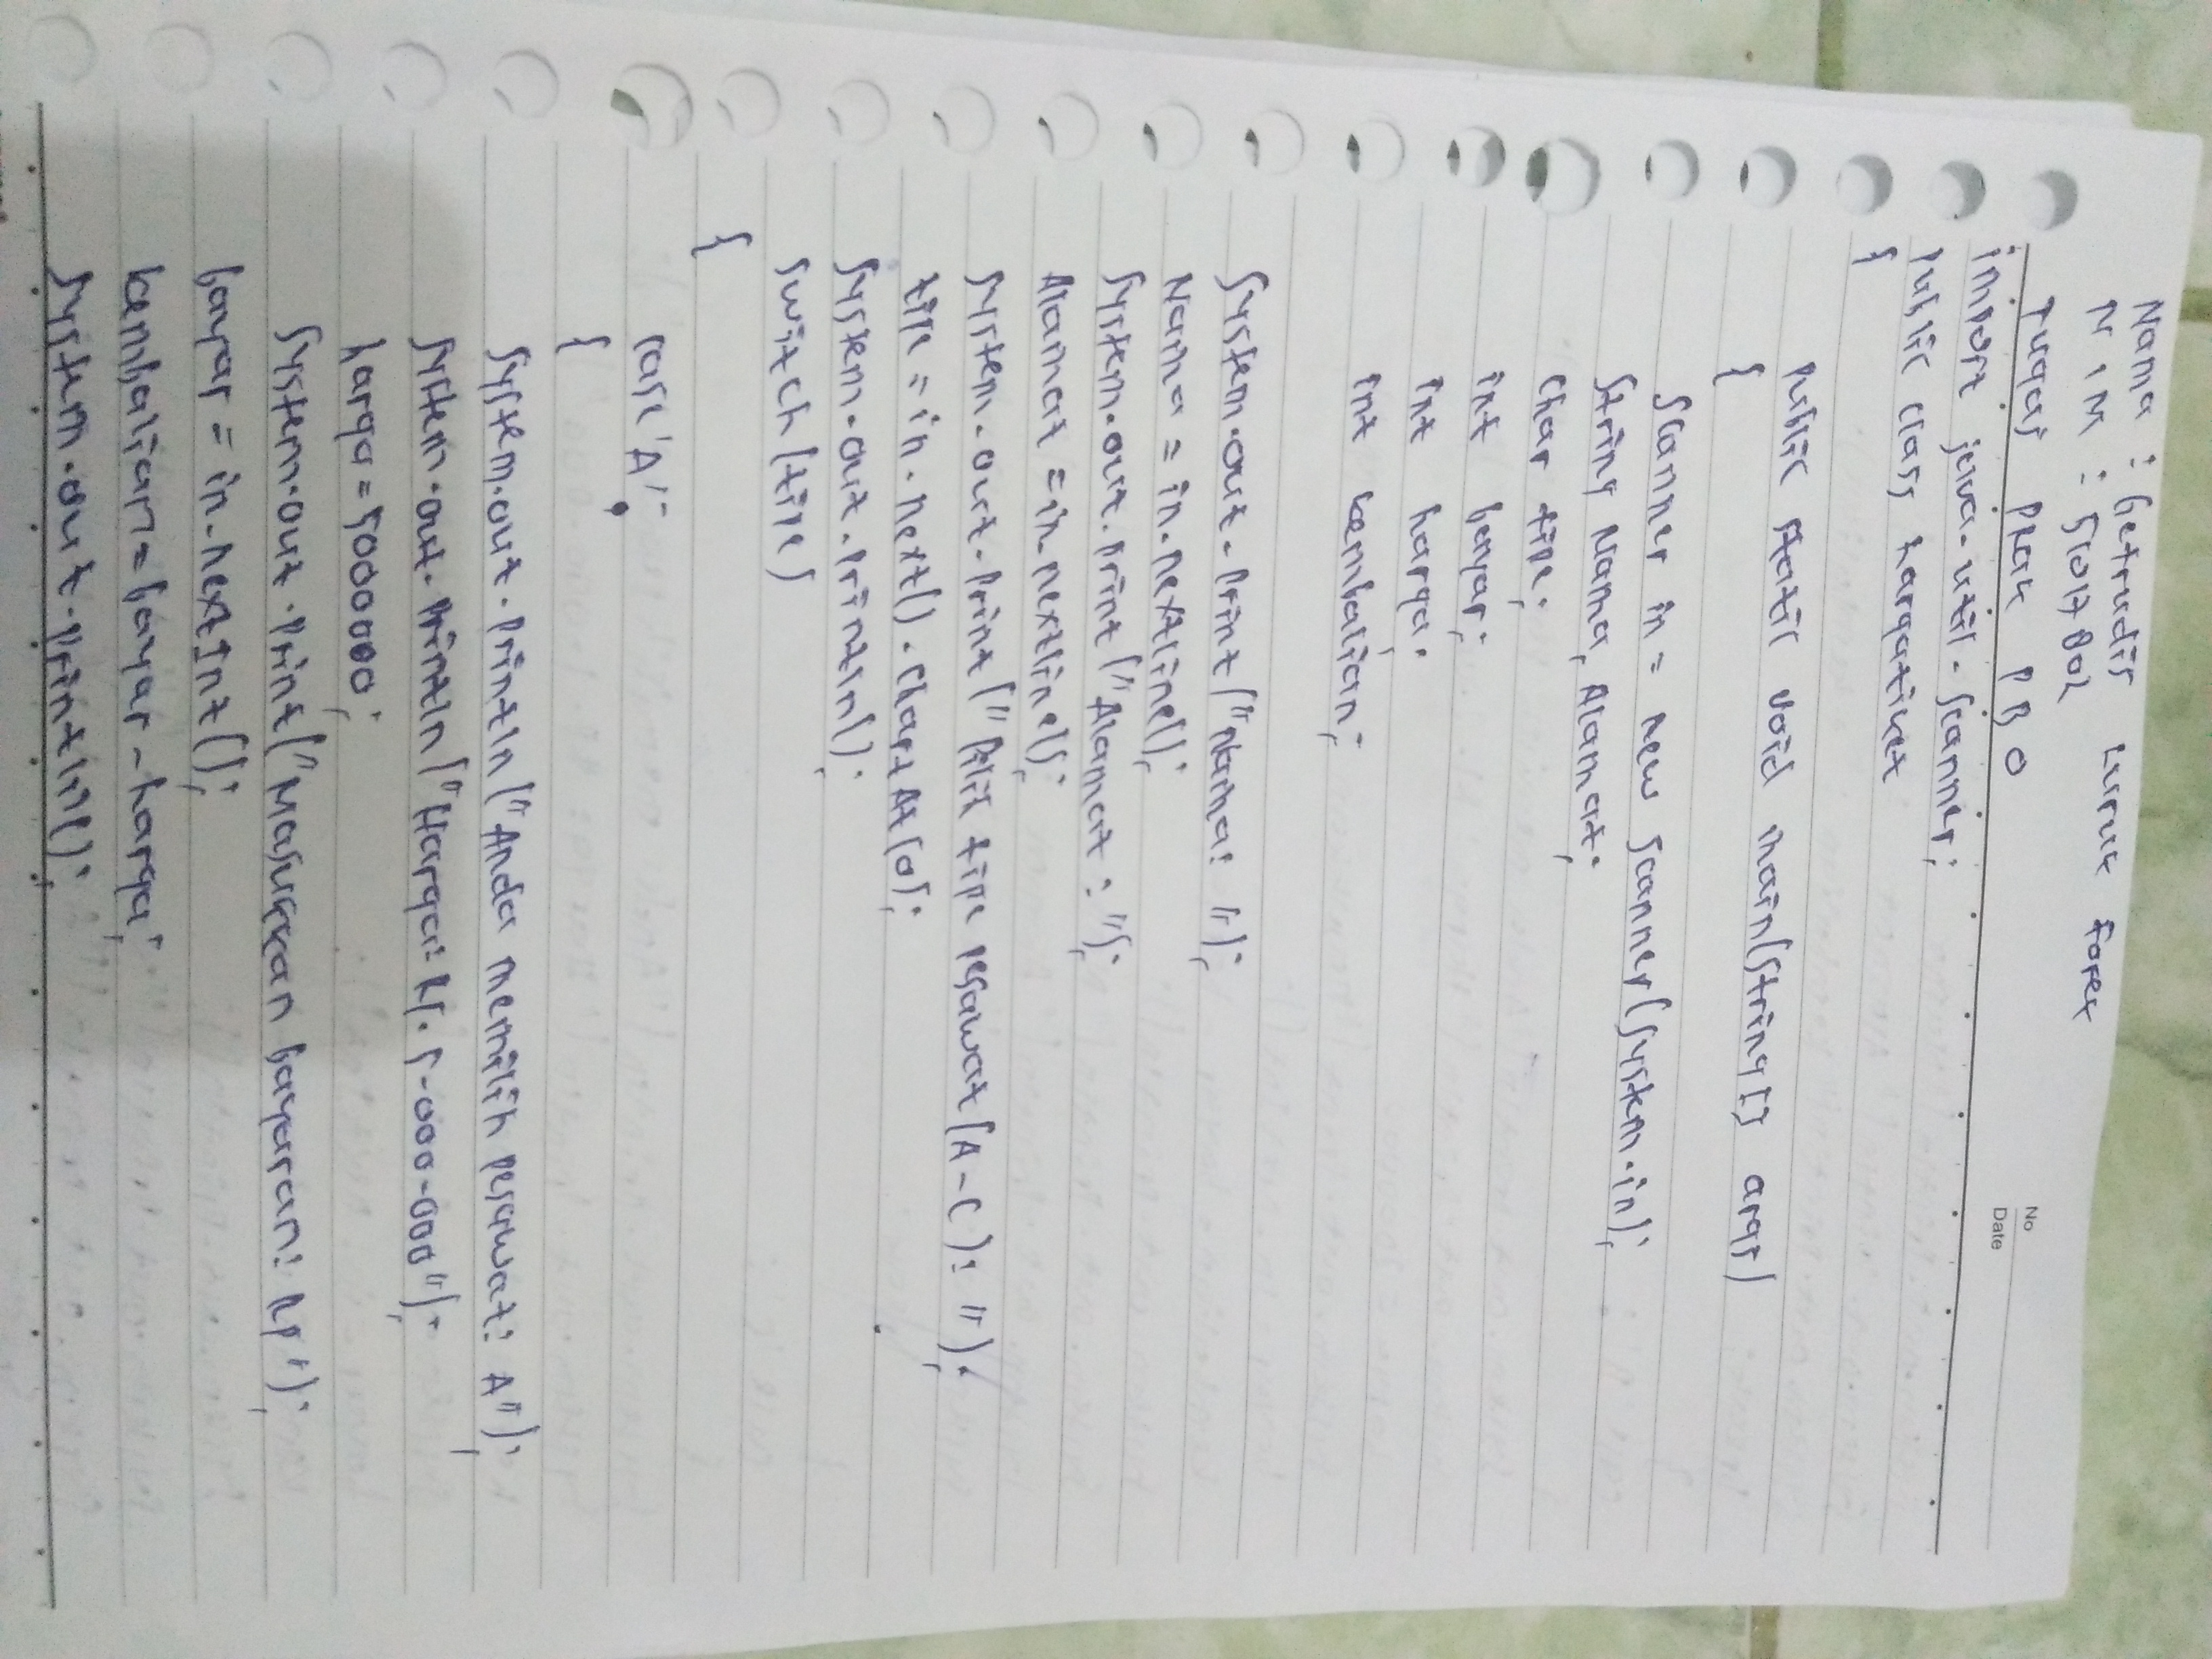 No
Date
Nama : Getrudis Luruk Forek
NIM : 51017002
Tugas PRAK PBO
import java.util.Scanner;
public class hargatiket
{
public static void main(String[] args)
{
Scanner in = new Scanner(System.in);
String Nama, Alamat;
char tipe;
int bayar;
int harga;
int kembalian;
System.out.print("Nama: ");
Nama = in.nextline();
System.out.print("Alamat : ");
Alamat = in.nextline();
System.out.print("Pilih tipe pesawat (A-C): ");
tipe = in.next().charAt(0);
System.out.println();
switch (tipe)
{
case 'A':
{
System.out.println("Anda memilih pesawat: A");
System.out.println("Harga: Rp. 5.000.000");
harga = 5000000;
System.out.print("Masukkan bayaran: Rp");
bayar = in.nextInt();
kembalian = bayar - harga;
System.out.println();